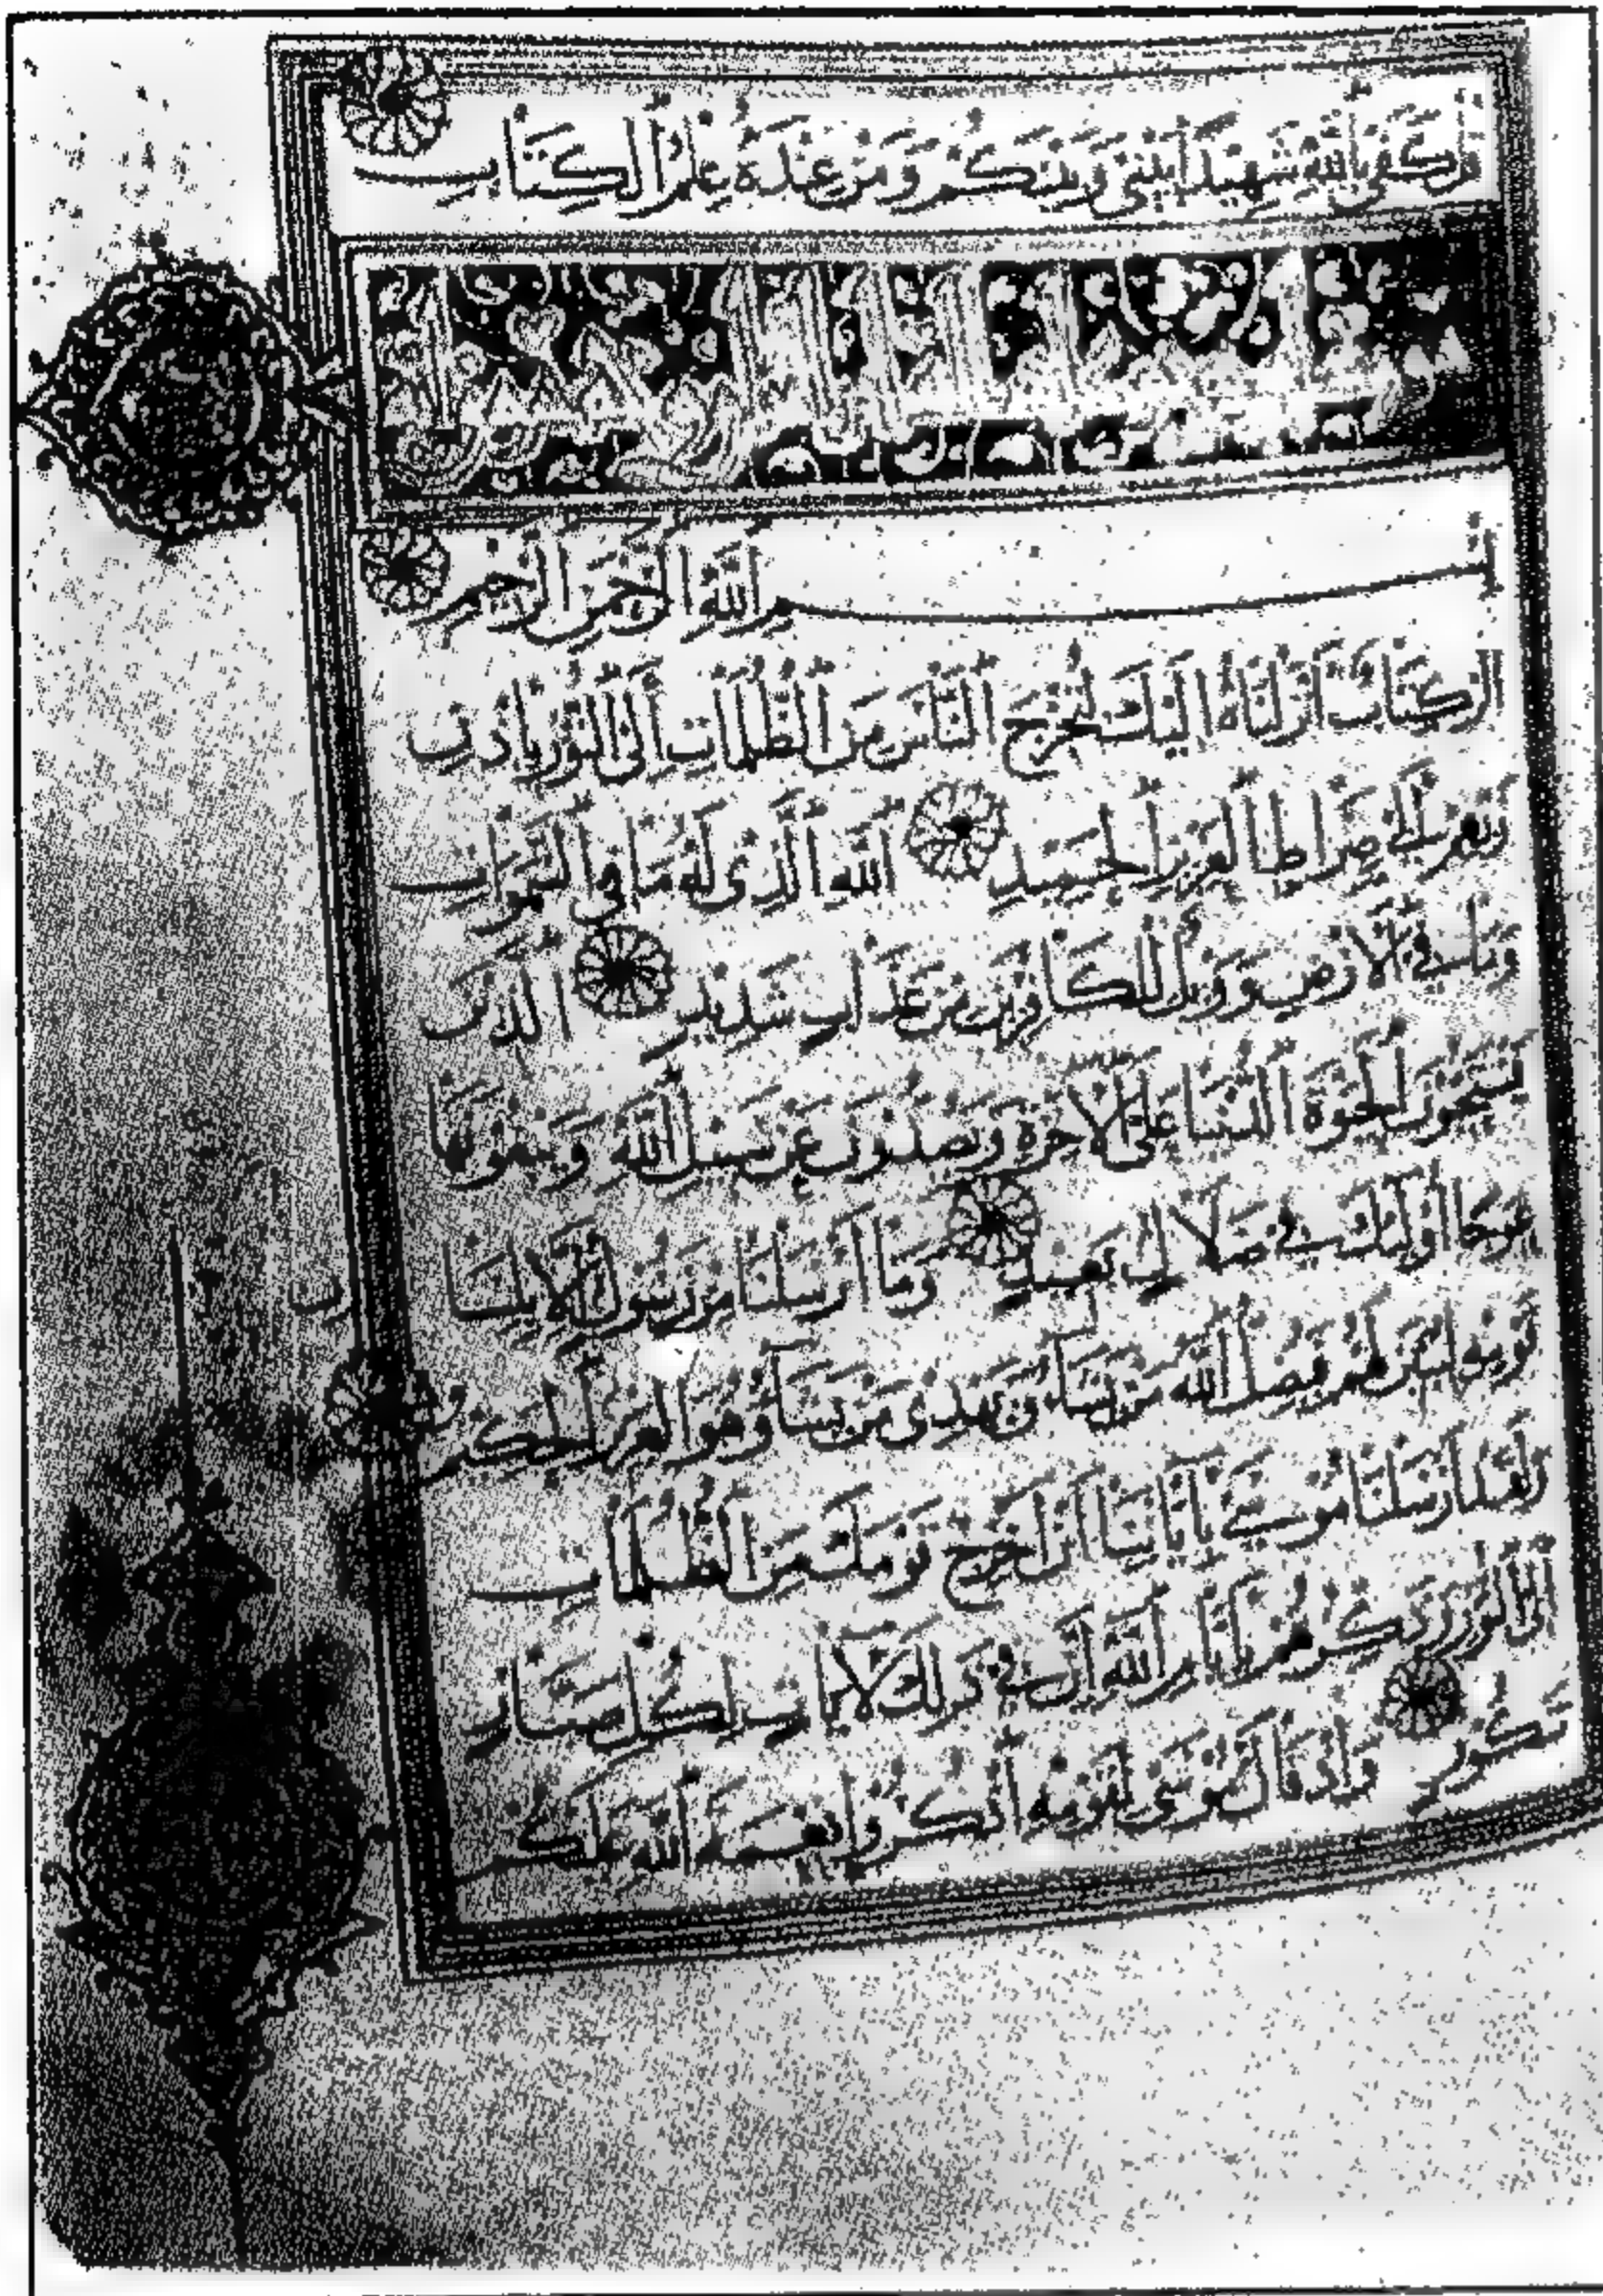 قل كفى بالله شهيدا بيني وبينكم ومن عنده علم الكتاب
بسم الله الرحمن الرحيم
الر كتاب انزلناه اليك لتخرج الناس من الظلمات الى النور باذن
ربهم الى صراط العزيز الحميد الله الذي له ما في السموات
وما في الارض وويل للكافرين من عذاب شديد الذين
يستحبون الحيوة الدنيا على الآخرة ويصدون عن سبيل الله ويبغونها
عوجا اولئك في ضلال بعيد وما ارسلنا من رسول الا بلسان
قومه ليبين لهم فيضل الله من يشاء ويهدي من يشاء وهو العزيز الحكيم
ولقد ارسلنا موسى باياتنا ان اخرج قومك من الظلمات
الى النور وذكرهم بايام الله ان في ذلك لآيات لكل صبار
شكور واذ قال موسى لقومه اذكروا نعمة الله عليكم